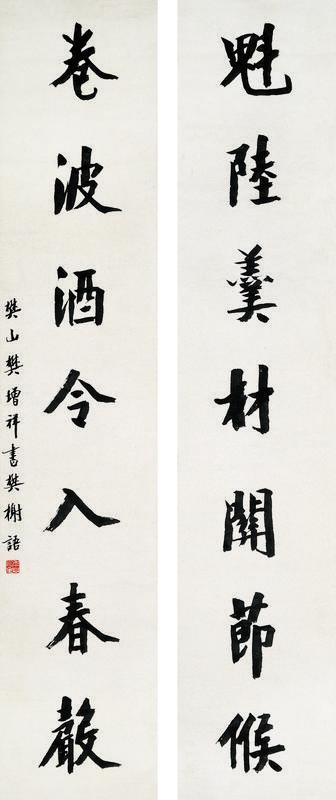 魁陸羹材關節候
卷波酒令入春聲
樊山樊增祥書樊榭語